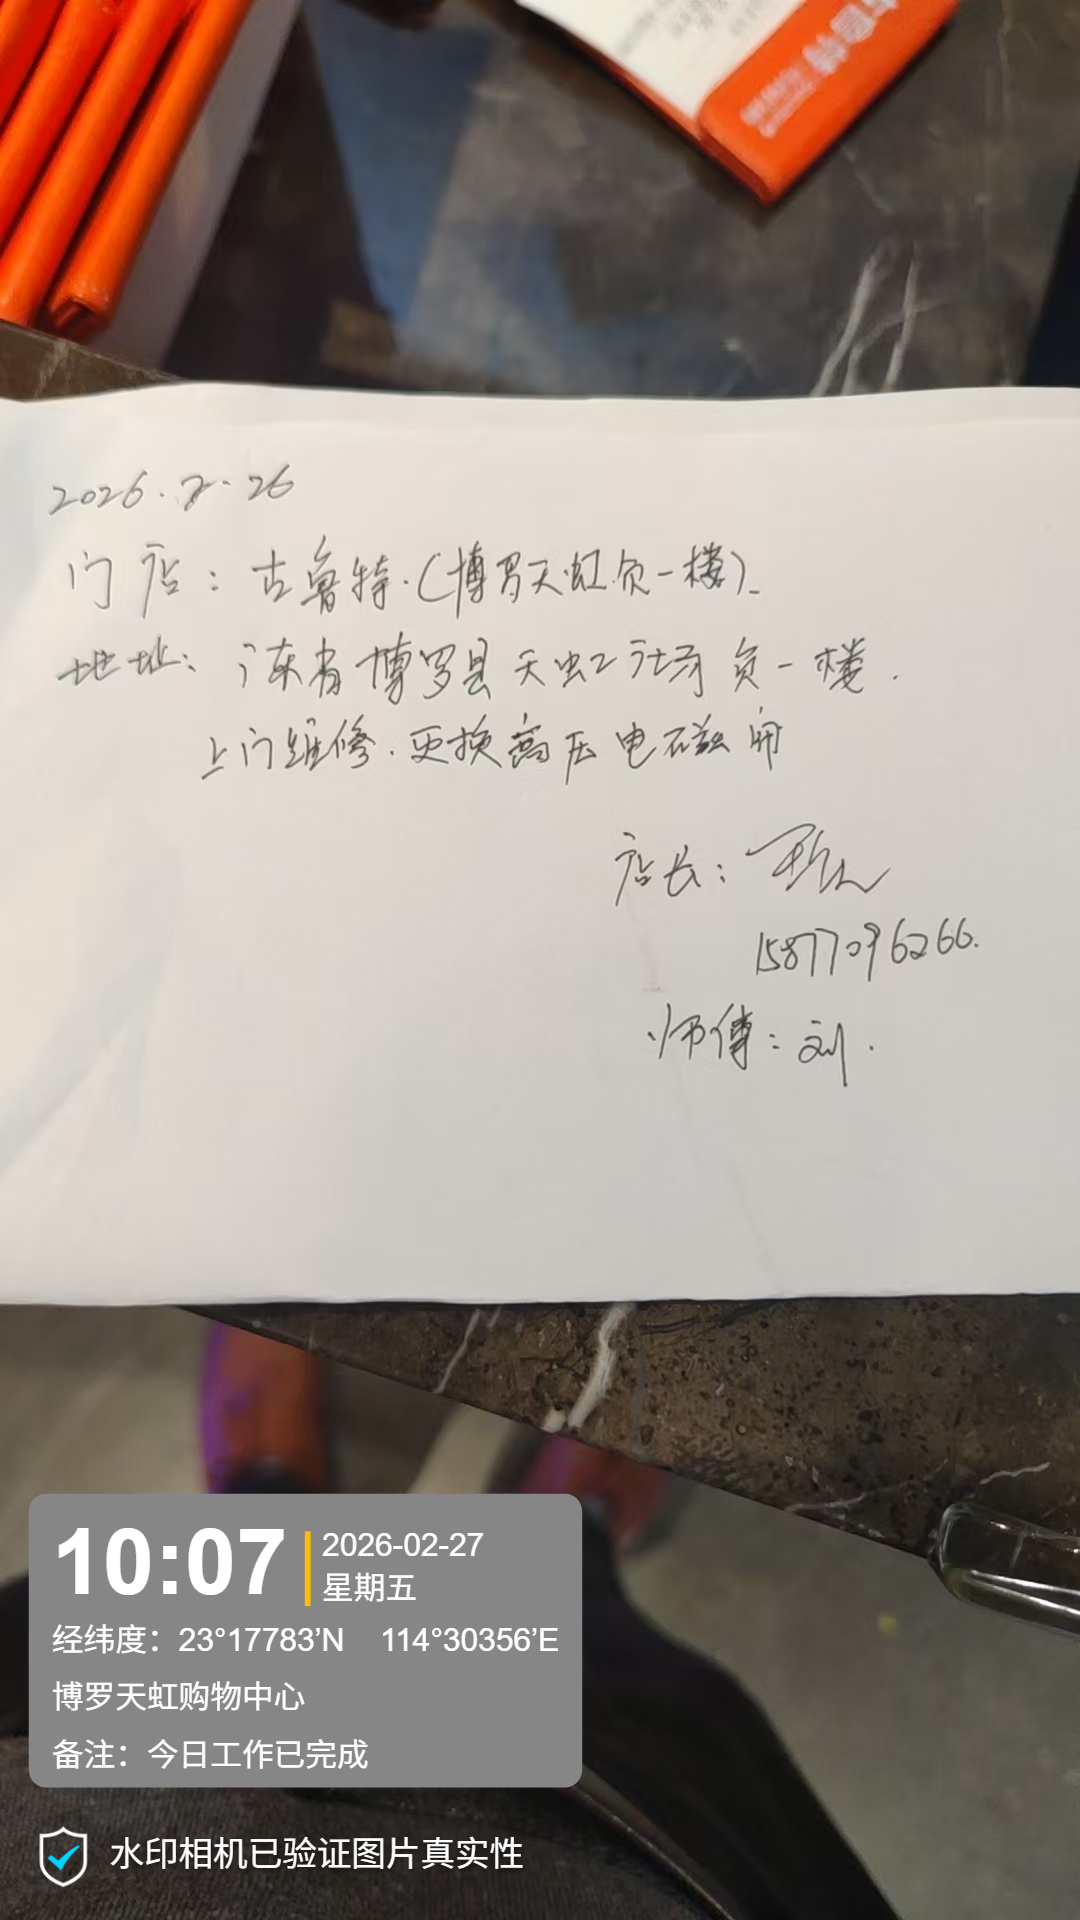 2026.2.26
门店：古鲁特.(博罗天虹负一楼).
地址：广东省博罗县天虹商场负一楼.
上门维修.更换高压电磁阀
店长：
15877096266.
师傅：刘.
10:07
2026-02-27
星期五
经纬度：23°17783’N 114°30356’E
博罗天虹购物中心
备注：今日工作已完成
水印相机已验证图片真实性